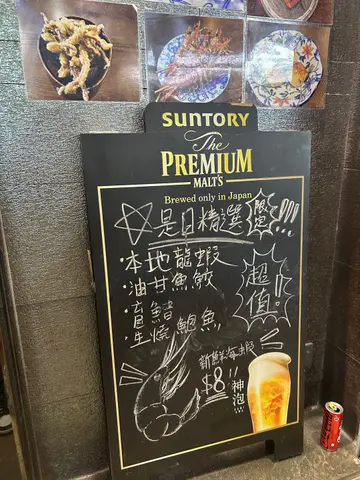 SUNTORY
The
PREMIUM
MALT'S
Brewed only in Japan
是日精選
限定!!!
·本地龍蝦
·油甘魚鮫
·盲鰽
·生燒鮑魚
超值!!
新鮮海蝦
$8!!
神泡